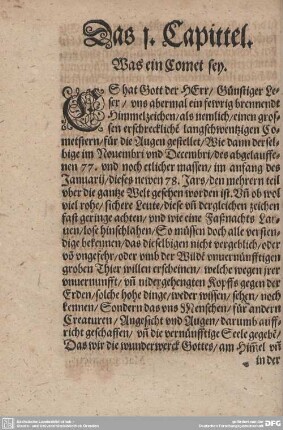 Das 1. Capittel.
Was ein Comet sey.
ES hat Gott der HErr / Günstiger Le-
ser / vns abermal ein fewrig brennendt
Himmelzeichen / als nemlich / einen gros-
sen erschrecklichẽ langschwentzigen Co-
metstern / für die Augen gestellet / Wie dann dersel-
bige im Nouembri vnd Decembri / des abgelauffe-
nen 77. vnd noch etlicher massen / im anfang des
Januarij / dieses newen 78. Jars / den mehrern theil
vber die gantze Welt gesehen worden ist. Vñ ob wol
viel rohe / sichere Leute / diese vñ dergleichen zeichen
fast geringe achten / vnd wie eine Faßnachts Lar-
uen / lose hinschlahen / So müssen doch alle versten-
dige bekennen / das dieselbigen nicht vergeblich / oder
võ vngefehr / oder vmb der Wildẽ vnuernünfftigen
groben Thier willen erscheinen / welche wegen jrer
vnuernunfft / vñ nidergehengten Kopffs gegen der
Erden / solche hohe dinge / weder wissen / sehen / noch
kennen / Sondern das vns Menschen / für andern
Creaturen / Angesicht vnd Augen / darumb auff-
richt geschaffen / vñ die vernünfftige Seele gegebẽ /
Das wir die wunderwerck Gottes / am Him̃el vñ
in der
DFG